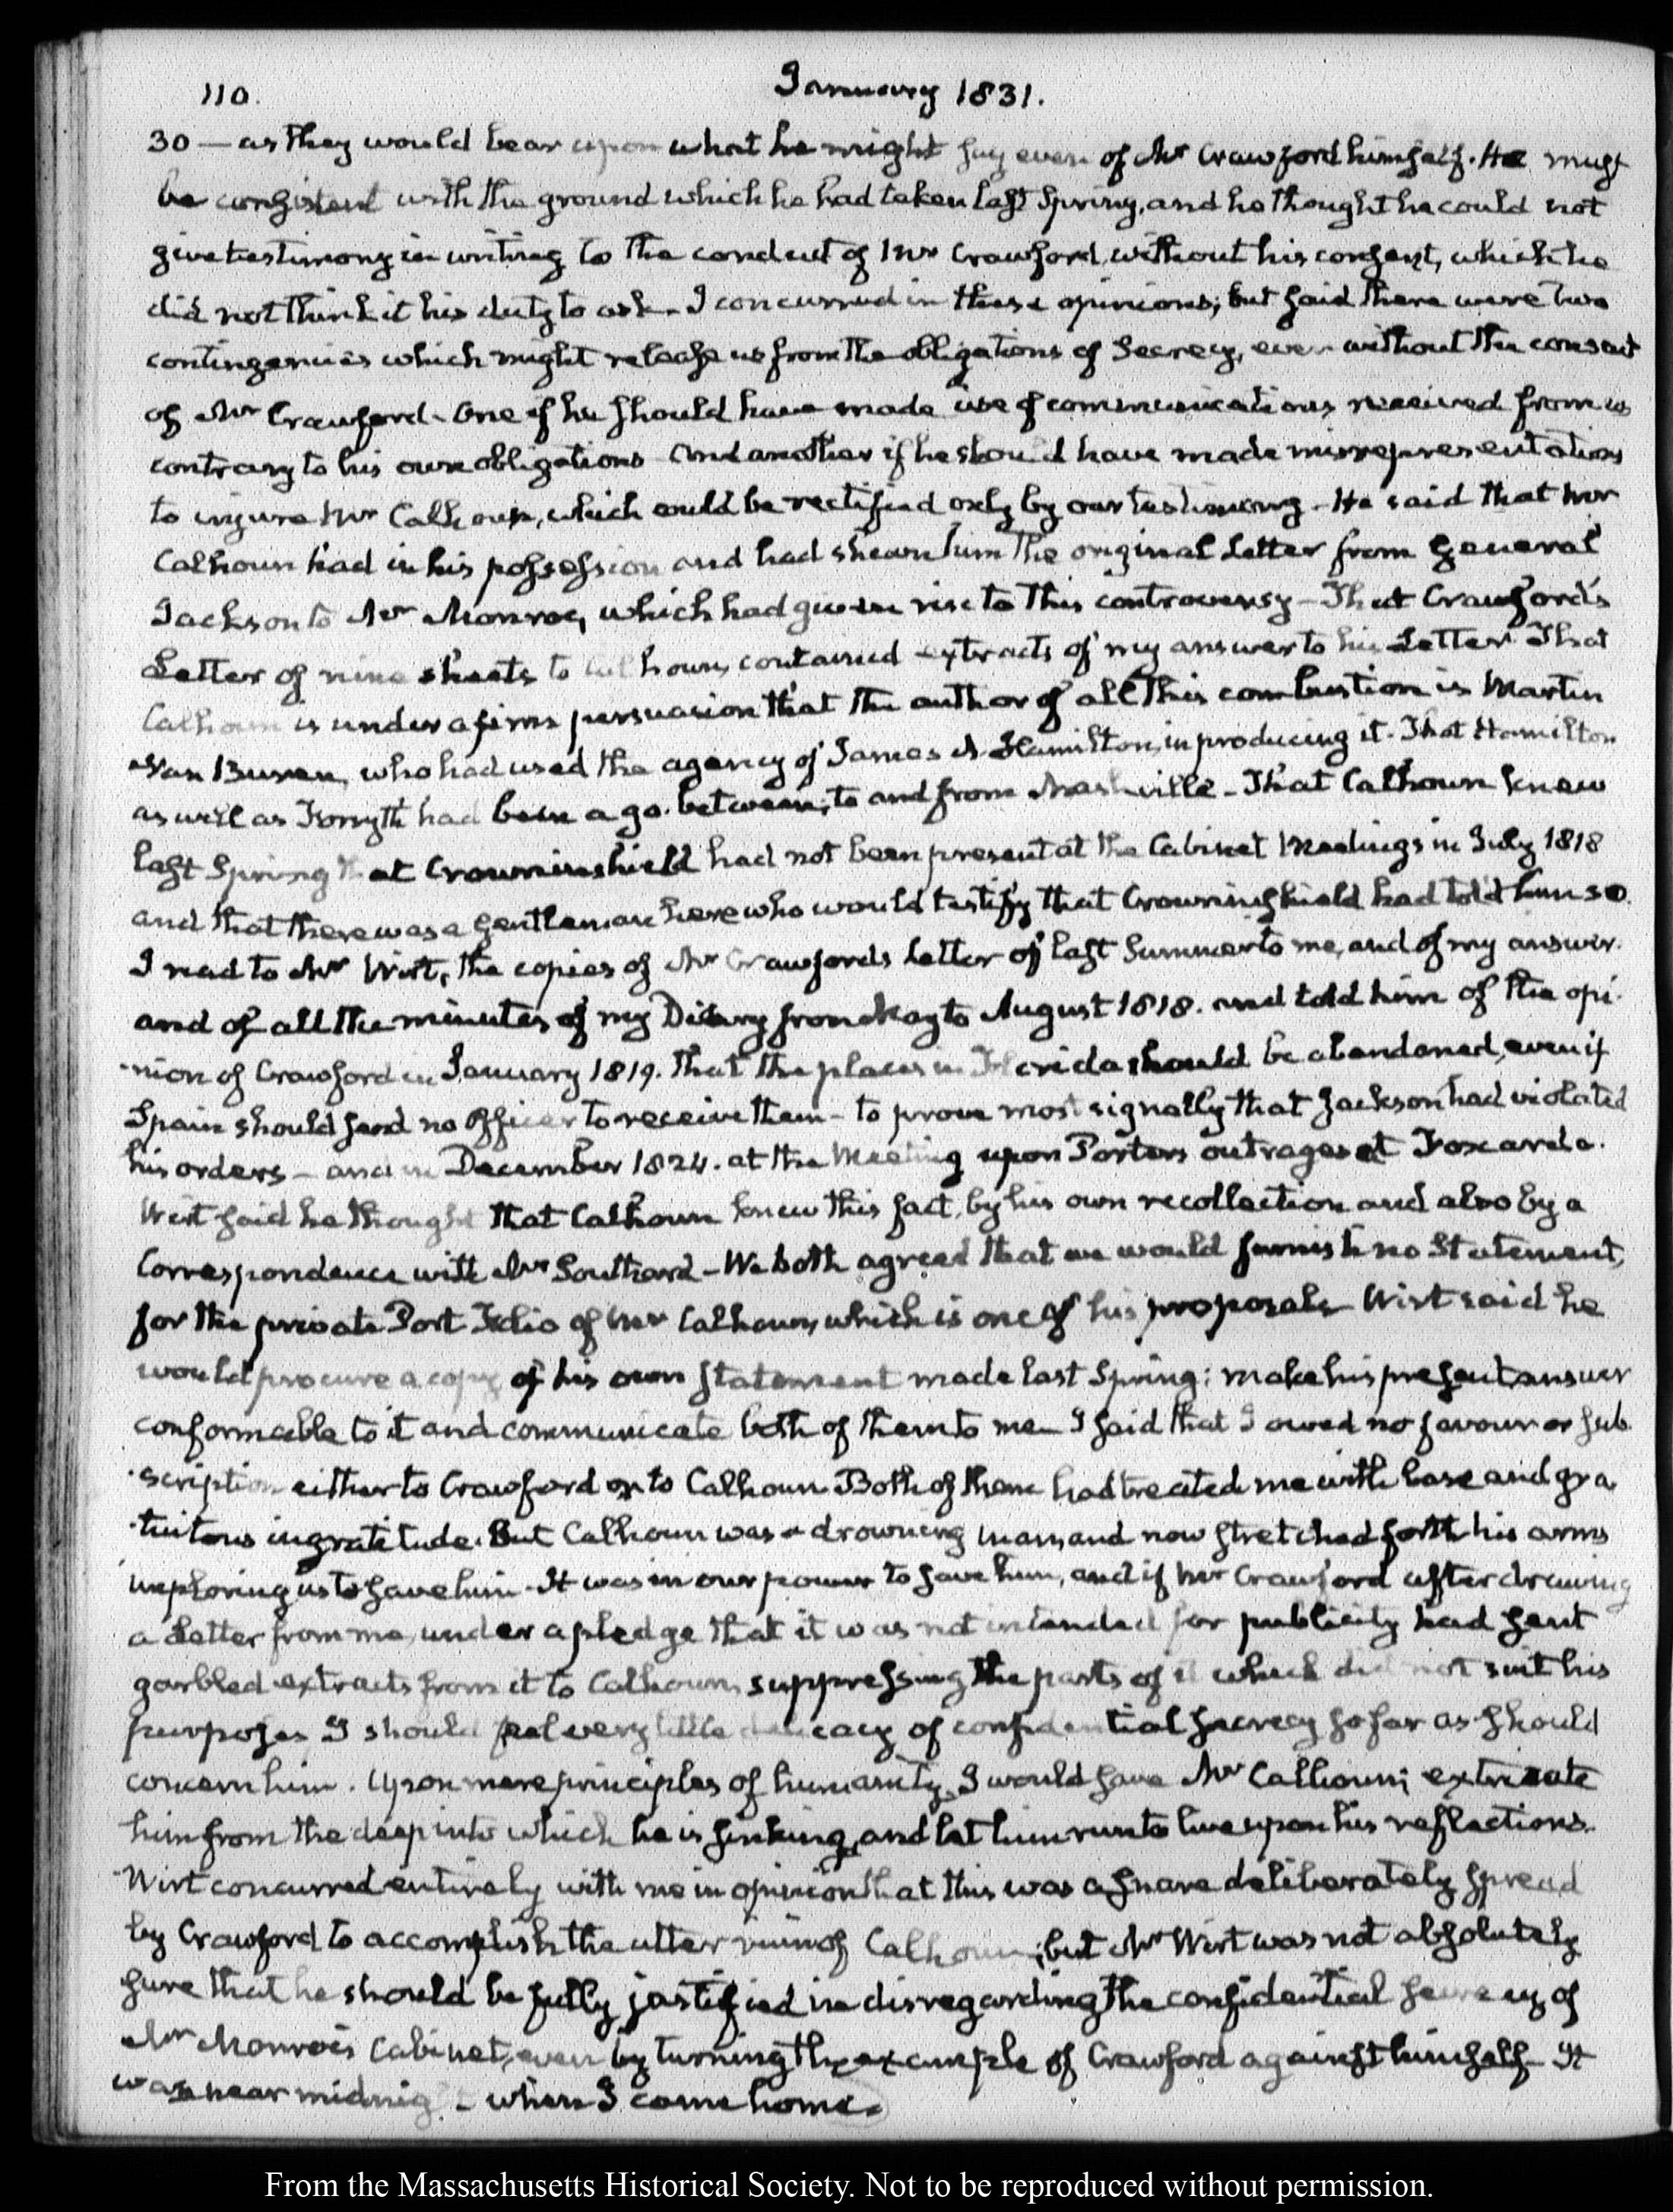 110.
January 1831.
30 — as they would bear upon what he might say even of Mr Crawford himself. He must
be consistent with the ground which he had taken last Spring, and he thought he could not
give testimony in writing to the conduct of Mr Crawford, without his consent, which he
did not think it his duty to ask. I concurred in these opinions; but said there were two
contingencies which might release us from the obligations of Secrecy, even without the consent
of Mr Crawford. One if he should have made use of communications received from us
contrary to his own obligations And another if he should have made misrepresentations
to injure Mr Calhoun, which could be rectified only by our testimony. He said that Mr
Calhoun had in his possession and had shewn him the original Letter from General
Jackson to Mr Monroe, which had given rise to this controversy — That Crawford's
Letter of nine sheets to Calhoun, contained extracts of my answer to his Letter That
Calhoun is under a firm persuasion that the author of all this combustion is Martin
Van Buren, who had used the agency of James A. Hamilton, in producing it. That Hamilton
as well as Forsyth had been a go-between, to and from Nashville. That Calhoun knew
last Spring that Crowninshield had not been present at the Cabinet Meetings in July 1818
and that there was a Gentleman here who would testify that Crowninshield had told him so.
I read to Mr Wirt, the copies of Mr Crawford's Letter of last Summer to me, and of my answer.
and of all the minutes of my Diary from May to August 1818. and told him of the opi-
-nion of Crawford in January 1819. that the places in Florida should be abandoned, even if
Spain should send no Officer to receive them — to prove most signally that Jackson had violated
his orders — and in December 1824. at the Meeting upon Porter's outrages at Foxardo.
Wirt said he thought that Calhoun knew this fact, by his own recollection and also by a
Correspondence with Mr Southard — We both agreed that we would furnish no Statement,
for the private Port Folio of Mr Calhoun, which is one of his proposals Wirt said he
would procure a copy of his own statement made last Spring; make his present answer
conformable to it and communicate both of them to me I said that I owed no favour or sub-
-scription either to Crawford or to Calhoun. Both of them had treated me with base and gra-
-tuitous ingratitude. But Calhoun was a drowning man, and now stretched forth his arms
imploring us to save him. It was in our power to save him, and if Mr Crawford after drawing
a Letter from me, under a pledge that it was not intended for publicity had sent
garbled extracts from it to Calhoun, suppressing the parts of it which did not suit his
purposes I should feel very little delicacy of confidential secrecy so far as should
concern him. Upon mere principles of humanity, I would save Mr Calhoun; extricate
him from the deep into which he is sinking, and let him run to live upon his reflections.
Wirt concurred entirely with me in opinion that this was a snare deliberately spread
by Crawford to accomplish the utter ruin of Calhoun; but Mr Wirt was not absolutely
sure that he should be fully justified in disregarding the confidential secrecy of
Mr Monroe's Cabinet, even by turning the example of Crawford against himself. It
was near midnight when I came home.
From the Massachusetts Historical Society. Not to be reproduced without permission.